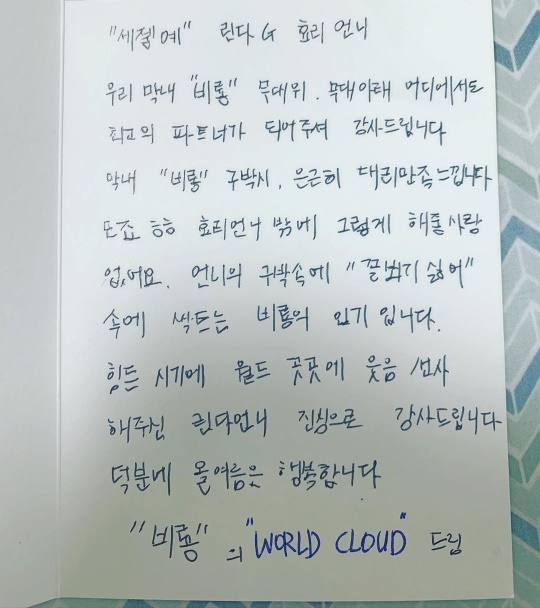 "세젤예" 린다G 효리언니
우리 막내 "비룡" 무대위, 무대아래 어디에서도
최고의 파트너가 되어주셔 감사드립니다
막내 "비룡" 구박시, 은근히 대리만족느낍니다
또죠 ㅎㅎ 효리언니 밖에 그렇게 해줄사람
없어요. 언니의 구박속에 "꼴뵈기 싫어"
속에 싹트는 비룡의 인기 입니다.
힘든 시기에 월드 곳곳에 웃음 선사
해주신 린다언니 진심으로 감사드립니다
덕분에 올여름은 행복합니다
"비룡" 의 "WORLD CLOUD" 드림